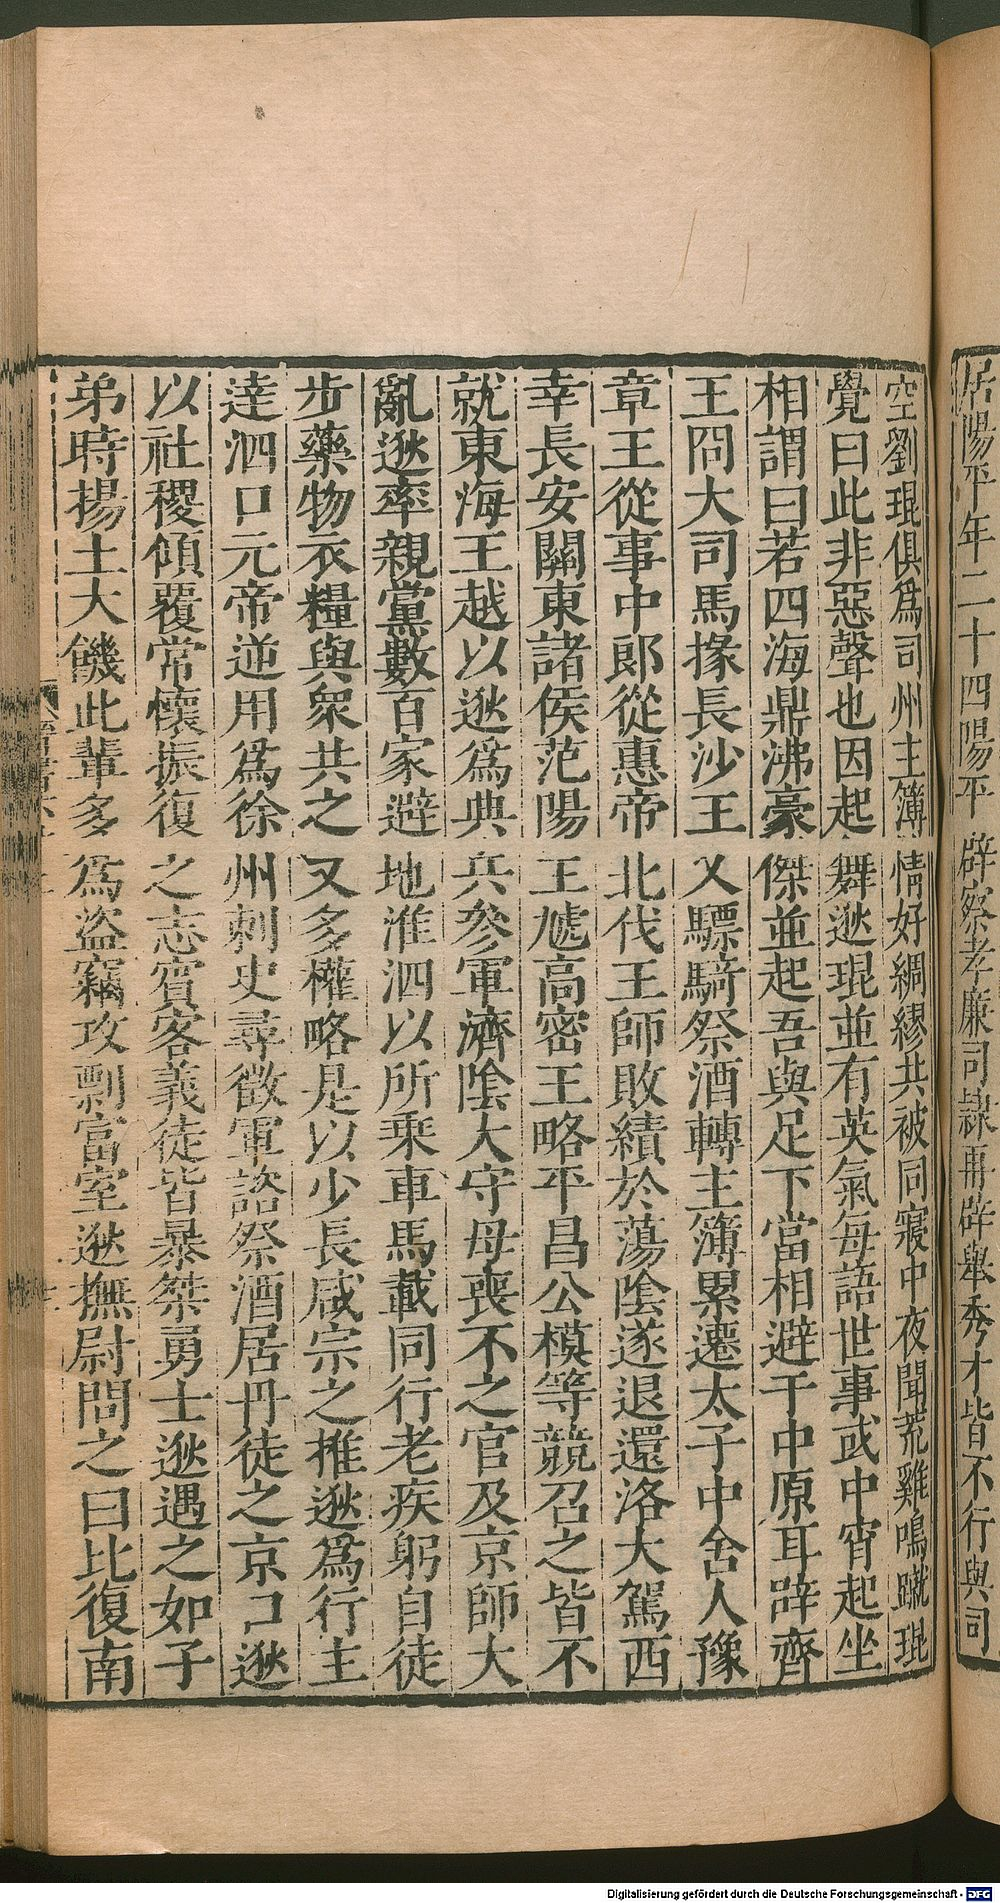 居陽平年二十四陽平辟察孝廉司隸再辟舉秀才皆不行與司
空劉琨俱爲司州主簿情好綢繆共被同寢中夜聞荒雞鳴蹴琨
覺曰此非惡聲也因起舞逖琨並有英氣每語世事或中宵起坐
相謂曰若四海鼎沸豪傑並起吾與足下當相避于中原耳辟齊
王冏大司馬掾長沙王乂驃騎祭酒轉主簿累遷太子中舍人豫
章王從事中郎從惠帝北伐王師敗績於蕩陰遂退還洛大駕西
幸長安關東諸侯范陽王虓高密王略平昌公模等競召之皆不
就東海王越以逖爲典兵參軍濟陰大守母喪不之官及京師大
亂逖率親黨數百家避地淮泗以所乘車馬載同行老疾躬自徒
步藥物衣糧與衆共之又多權略是以少長咸宗之推逖爲行主
達泗口元帝逆用爲徐州刺史尋徵軍諮祭酒居丹徒之京口逖
以社稷傾覆常懷振復之志賓客義徒皆暴桀勇士逖遇之如子
弟時揚土大饑此輩多爲盜竊攻剽富室逖撫尉問之曰比復南
Digitalisierung gefördert durch die Deutsche Forschungsgemeinschaft - DFG